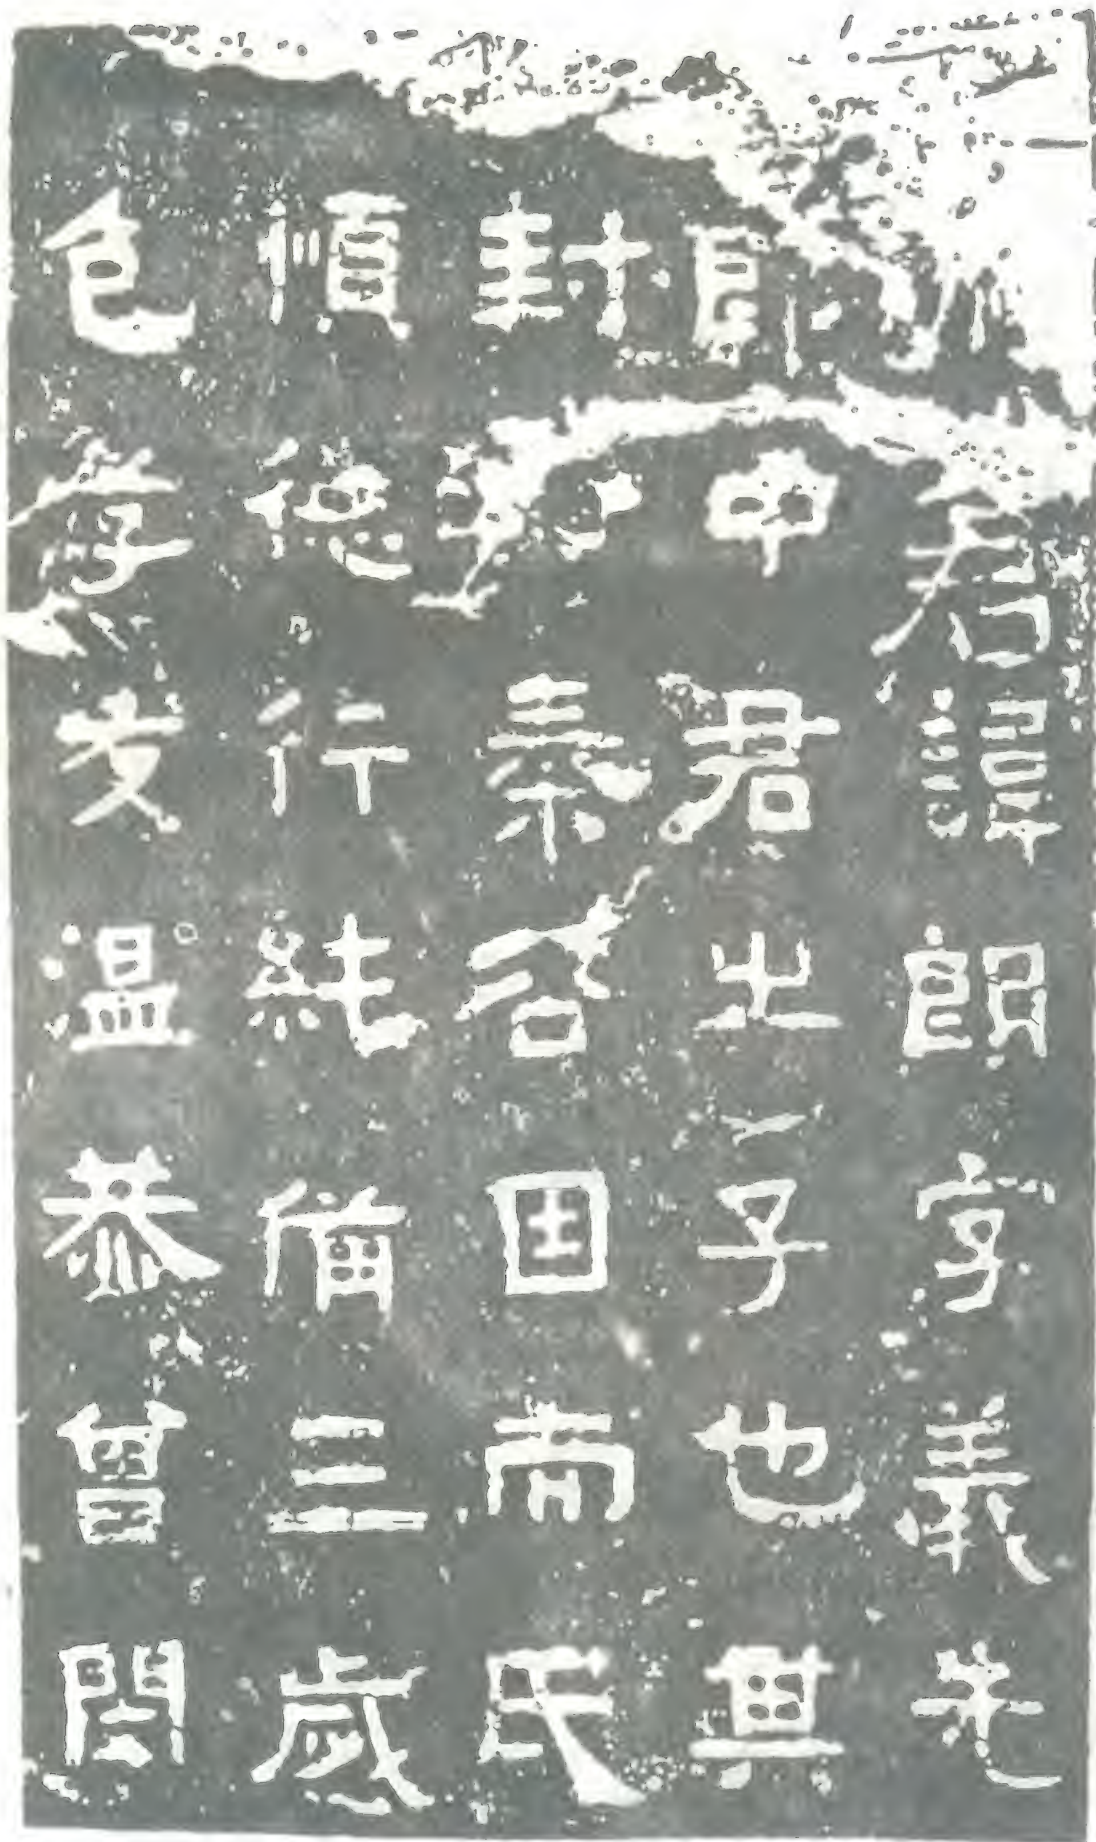 君諱朗字義先
郎中君之子也其
封於秦谷因而氏
順德行純備三歲
色孝友溫恭曾閔